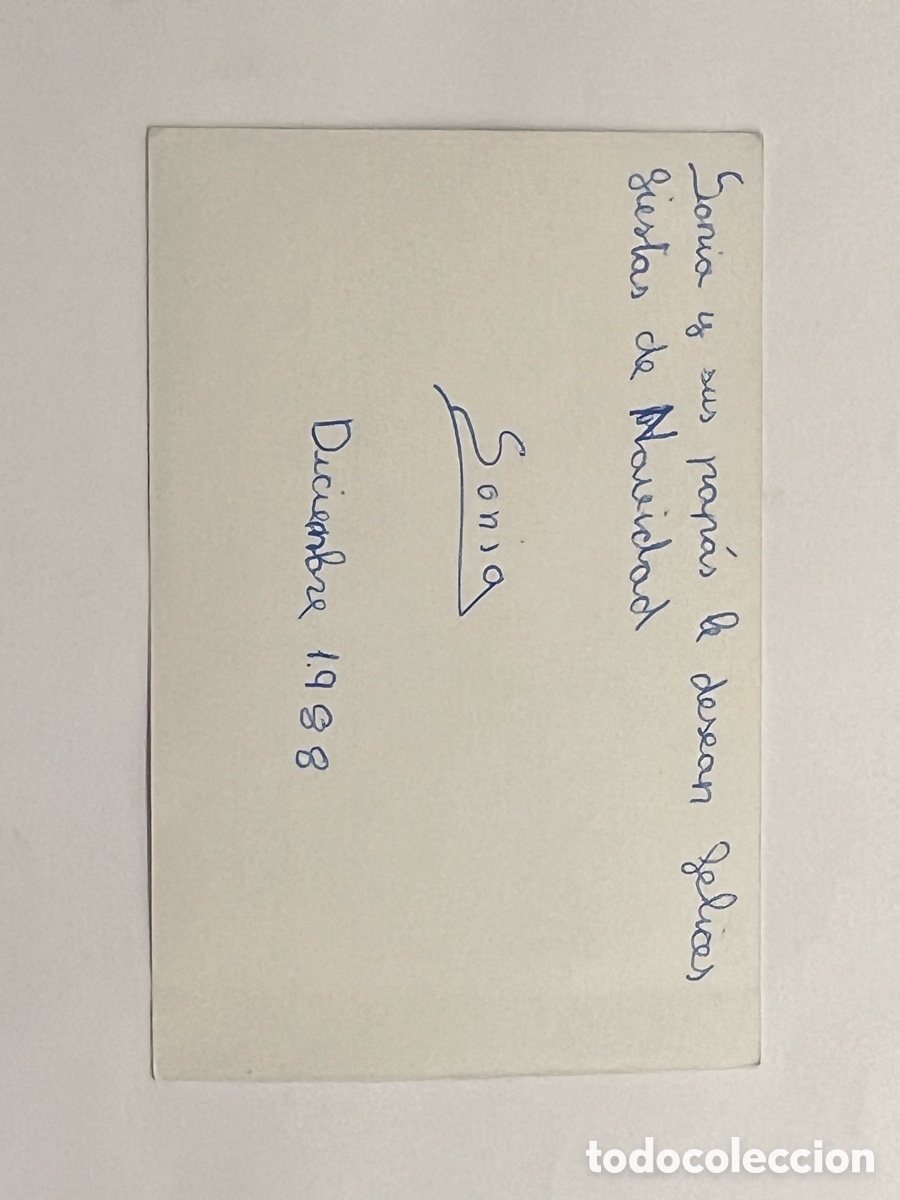 Sonia y sus papás le desean felices
fiestas de Navidad
Sonia
Diciembre 1.988
todocoleccion